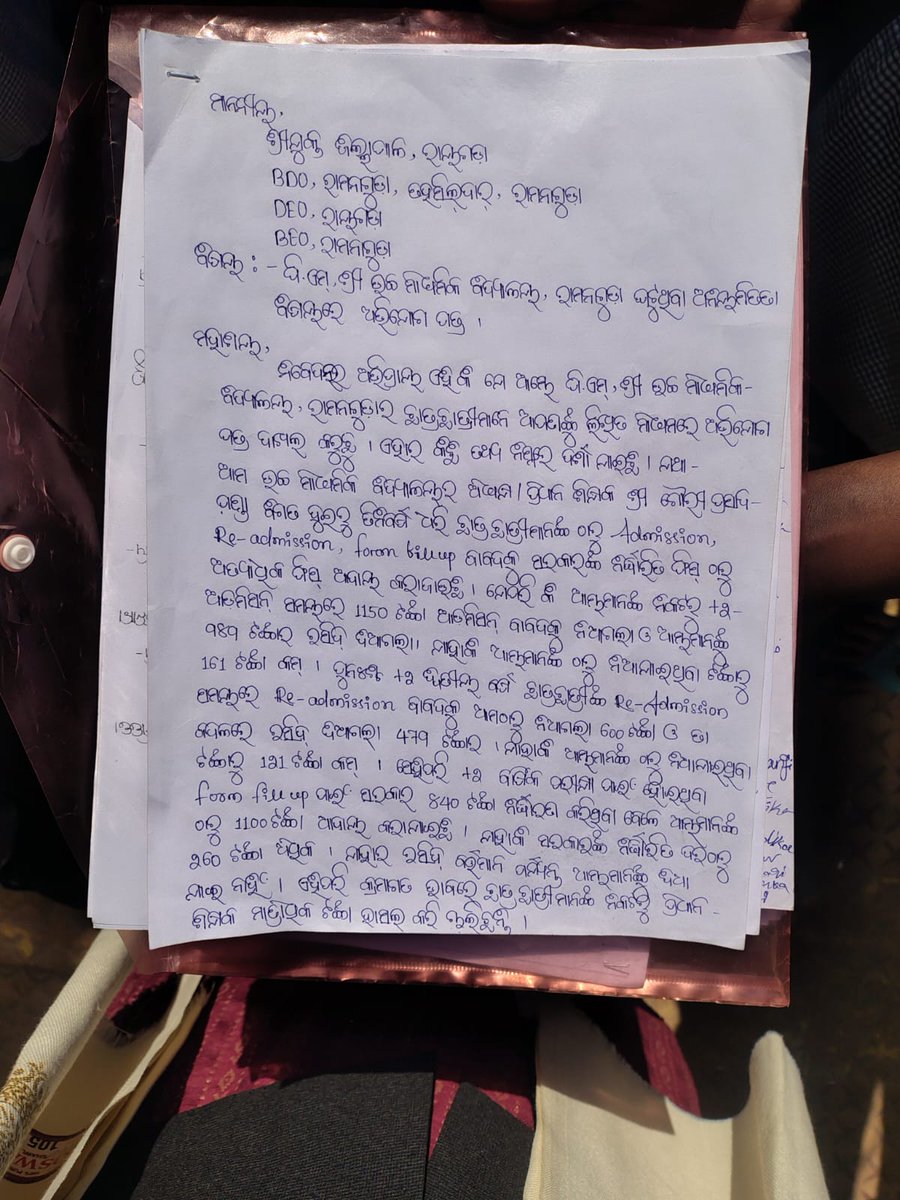 ମାନନୀୟ,
ଶ୍ରୀଯୁକ୍ତ ଜିଲ୍ଲାପାଳ, ରାୟଗଡ଼ା
BDO, ରାମନାଗୁଡା, ତହସିଲ୍‌ଦାର୍, ରାମନାଗୁଡା
DEO, ରାୟଗଡ଼ା
BEO, ରାମନାଗୁଡା
ବିଷୟ : - ପି.ଏମ୍.ଶ୍ରୀ ଉଚ୍ଚ ମାଧ୍ୟମିକ ବିଦ୍ୟାଳୟ, ରାମନାଗୁଡା ଘଟୁଥିବା ଅନିୟମିତତା
ବିଷୟରେ ଅଭିଯୋଗ ପତ୍ର ।
ମହାଶୟ,
ନିବେଦନର ଅଭିପ୍ରାୟ ଏହି କି ଯେ ଆମ୍ଭେ ପି.ଏମ୍.ଶ୍ରୀ ଉଚ୍ଚ ମାଧ୍ୟମିକ-
ବିଦ୍ୟାଳୟ, ରାମନାଗୁଡାର ଛାତ୍ରଛାତ୍ରୀମାନେ ଆପଣଙ୍କୁ ଲିଖିତ ମାଧ୍ୟମରେ ଅଭିଯୋଗ
ପତ୍ର ଦାଖଲ କରୁଛୁ । ଏହାର କିଛୁ ତଥ୍ୟ ନିମ୍ନରେ ଦର୍ଶା ଯାଇଛି । ଯଥା-
ଆମ ଉଚ୍ଚ ମାଧ୍ୟମିକ ବିଦ୍ୟାଳୟର ଅଧ୍ୟକ୍ଷ / ପ୍ରଧାନ ଶିକ୍ଷକ ଶ୍ରୀ ଗୌରୀ ପ୍ରସାଦ-
ବିଗତ ଦୁଇରୁ ତିନିବର୍ଷ ଧରି ଛାତ୍ରଛାତ୍ରୀମାନଙ୍କ ଠାରୁ Admission,
Re-admission, form fillup ବାବଦକୁ ସରକାରଙ୍କ ନିର୍ଦ୍ଧାରିତ ଫିସ୍ ଠାରୁ
ଅତ୍ୟଧିକ ଫିସ୍ ଆଦାୟ କରାଯାଇଛି । ଯେପରି କି ଆମ୍ଭମାନଙ୍କ ନିକଟରୁ +୨-
ଆଡମିସନ୍ ସମୟରେ 1150 ଟଙ୍କା ଆଡମିସନ୍ ବାବଦକୁ ନିଆଗଲା ଓ ଆମ୍ଭମାନଙ୍କୁ
୩୫୨ ଟଙ୍କାର ରସିଦ୍ ଦିଆଗଲା। ଯାହାକି ଆମ୍ଭମାନଙ୍କ ଠାରୁ ନିଆଯାଇଥିବା ଟଙ୍କାରୁ
161 ଟଙ୍କା କମ୍ । ପୁନଶ୍ଚ +୨ ଦ୍ୱିତୀୟ ବର୍ଷ ଛାତ୍ରଛାତ୍ରୀଙ୍କ Re-Admission
ସମୟରେ Re-admission ବାବଦକୁ ଆମଠାରୁ ନିଆଗଲା 600 ଟଙ୍କା ଓ ତା
ବଦଳରେ ରସିଦ୍ ଦିଆଗଲା 479 ଟଙ୍କାର । ଯାହାକି ଆମ୍ଭମାନଙ୍କ ଠାରୁ ନିଆଯାଇଥିବା
ଟଙ୍କାରୁ 121 ଟଙ୍କା କମ୍ । ସେହିପରି +୨ ବାର୍ଷିକ ପରୀକ୍ଷା ପାଇଁ ହୋଇଥିବା
form fill up ପାଇଁ ସରକାର 840 ଟଙ୍କା ନିର୍ଦ୍ଧାରଣ କରିଥିବା ବେଳେ ଆମ୍ଭମାନଙ୍କ
ଠାରୁ 1100 ଟଙ୍କା ଆଦାୟ କରାଯାଇଛି । ଯାହାକି ସରକାରଙ୍କ ନିର୍ଦ୍ଧାରିତ ଦରଠାରୁ
260 ଟଙ୍କା ଅଧିକ । ଯାହାର ରସିଦ୍ ବର୍ତ୍ତମାନ ପର୍ଯ୍ୟନ୍ତ ଆମ୍ଭମାନଙ୍କୁ ଦିଆ
ଯାଇ ନାହିଁ । ଏହିପରି କ୍ରମାଗତ ଭାବରେ ଛାତ୍ର ଛାତ୍ରୀମାନଙ୍କ ନିକଟରୁ ପ୍ରଧାନ-
ଶିକ୍ଷକ ମାତ୍ରାଧିକ ଟଙ୍କା ହାସଲ କରି ଚାଲିଛନ୍ତି ।